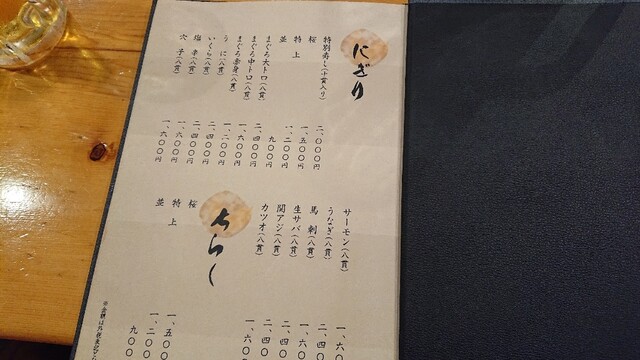 にぎり
特別寿し(十貫入り) 二、〇〇〇円
桜 一、五〇〇円
特上 一、二〇〇円
並 九〇〇円
まぐろ大トロ(八貫) 二、四〇〇円
まぐろ中トロ(八貫) 一、六〇〇円
まぐろ赤身(八貫) 一、二〇〇円
うに(八貫) 二、四〇〇円
いくら(八貫) 二、四〇〇円
(八貫) 一、六〇〇円
穴子(八貫) 一、六〇〇円
サーモン(八貫) 一、六〇
うなぎ(八貫) 二、四〇
馬刺(八貫) 一、六〇
生サバ(八貫) 二、四〇
関アジ(八貫) 二、四〇
カツオ(八貫) 一、六〇〇
ちらし
桜 一、五〇〇
特上 一、二〇〇
並 九〇〇